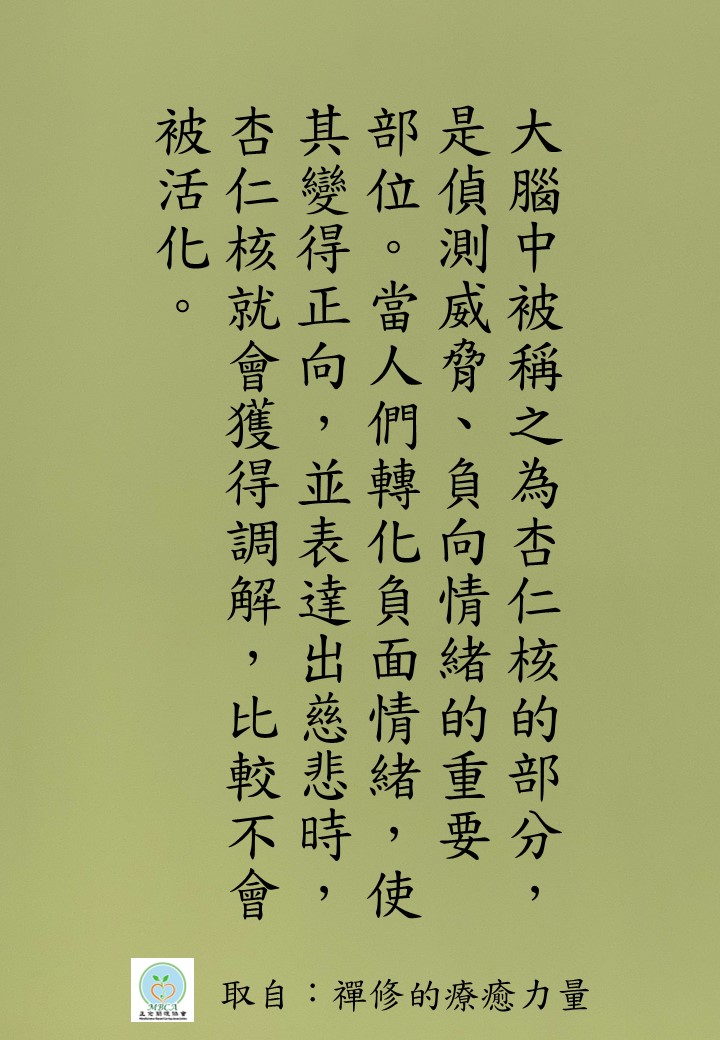 大腦中被稱之為杏仁核的部分，
是偵測威脅、負向情緒的重要
部位。當人們轉化負面情緒，使
其變得正向，並表達出慈悲時，
杏仁核就會獲得調解，比較不會
被活化。
MBCA
取自：禪修的療癒力量